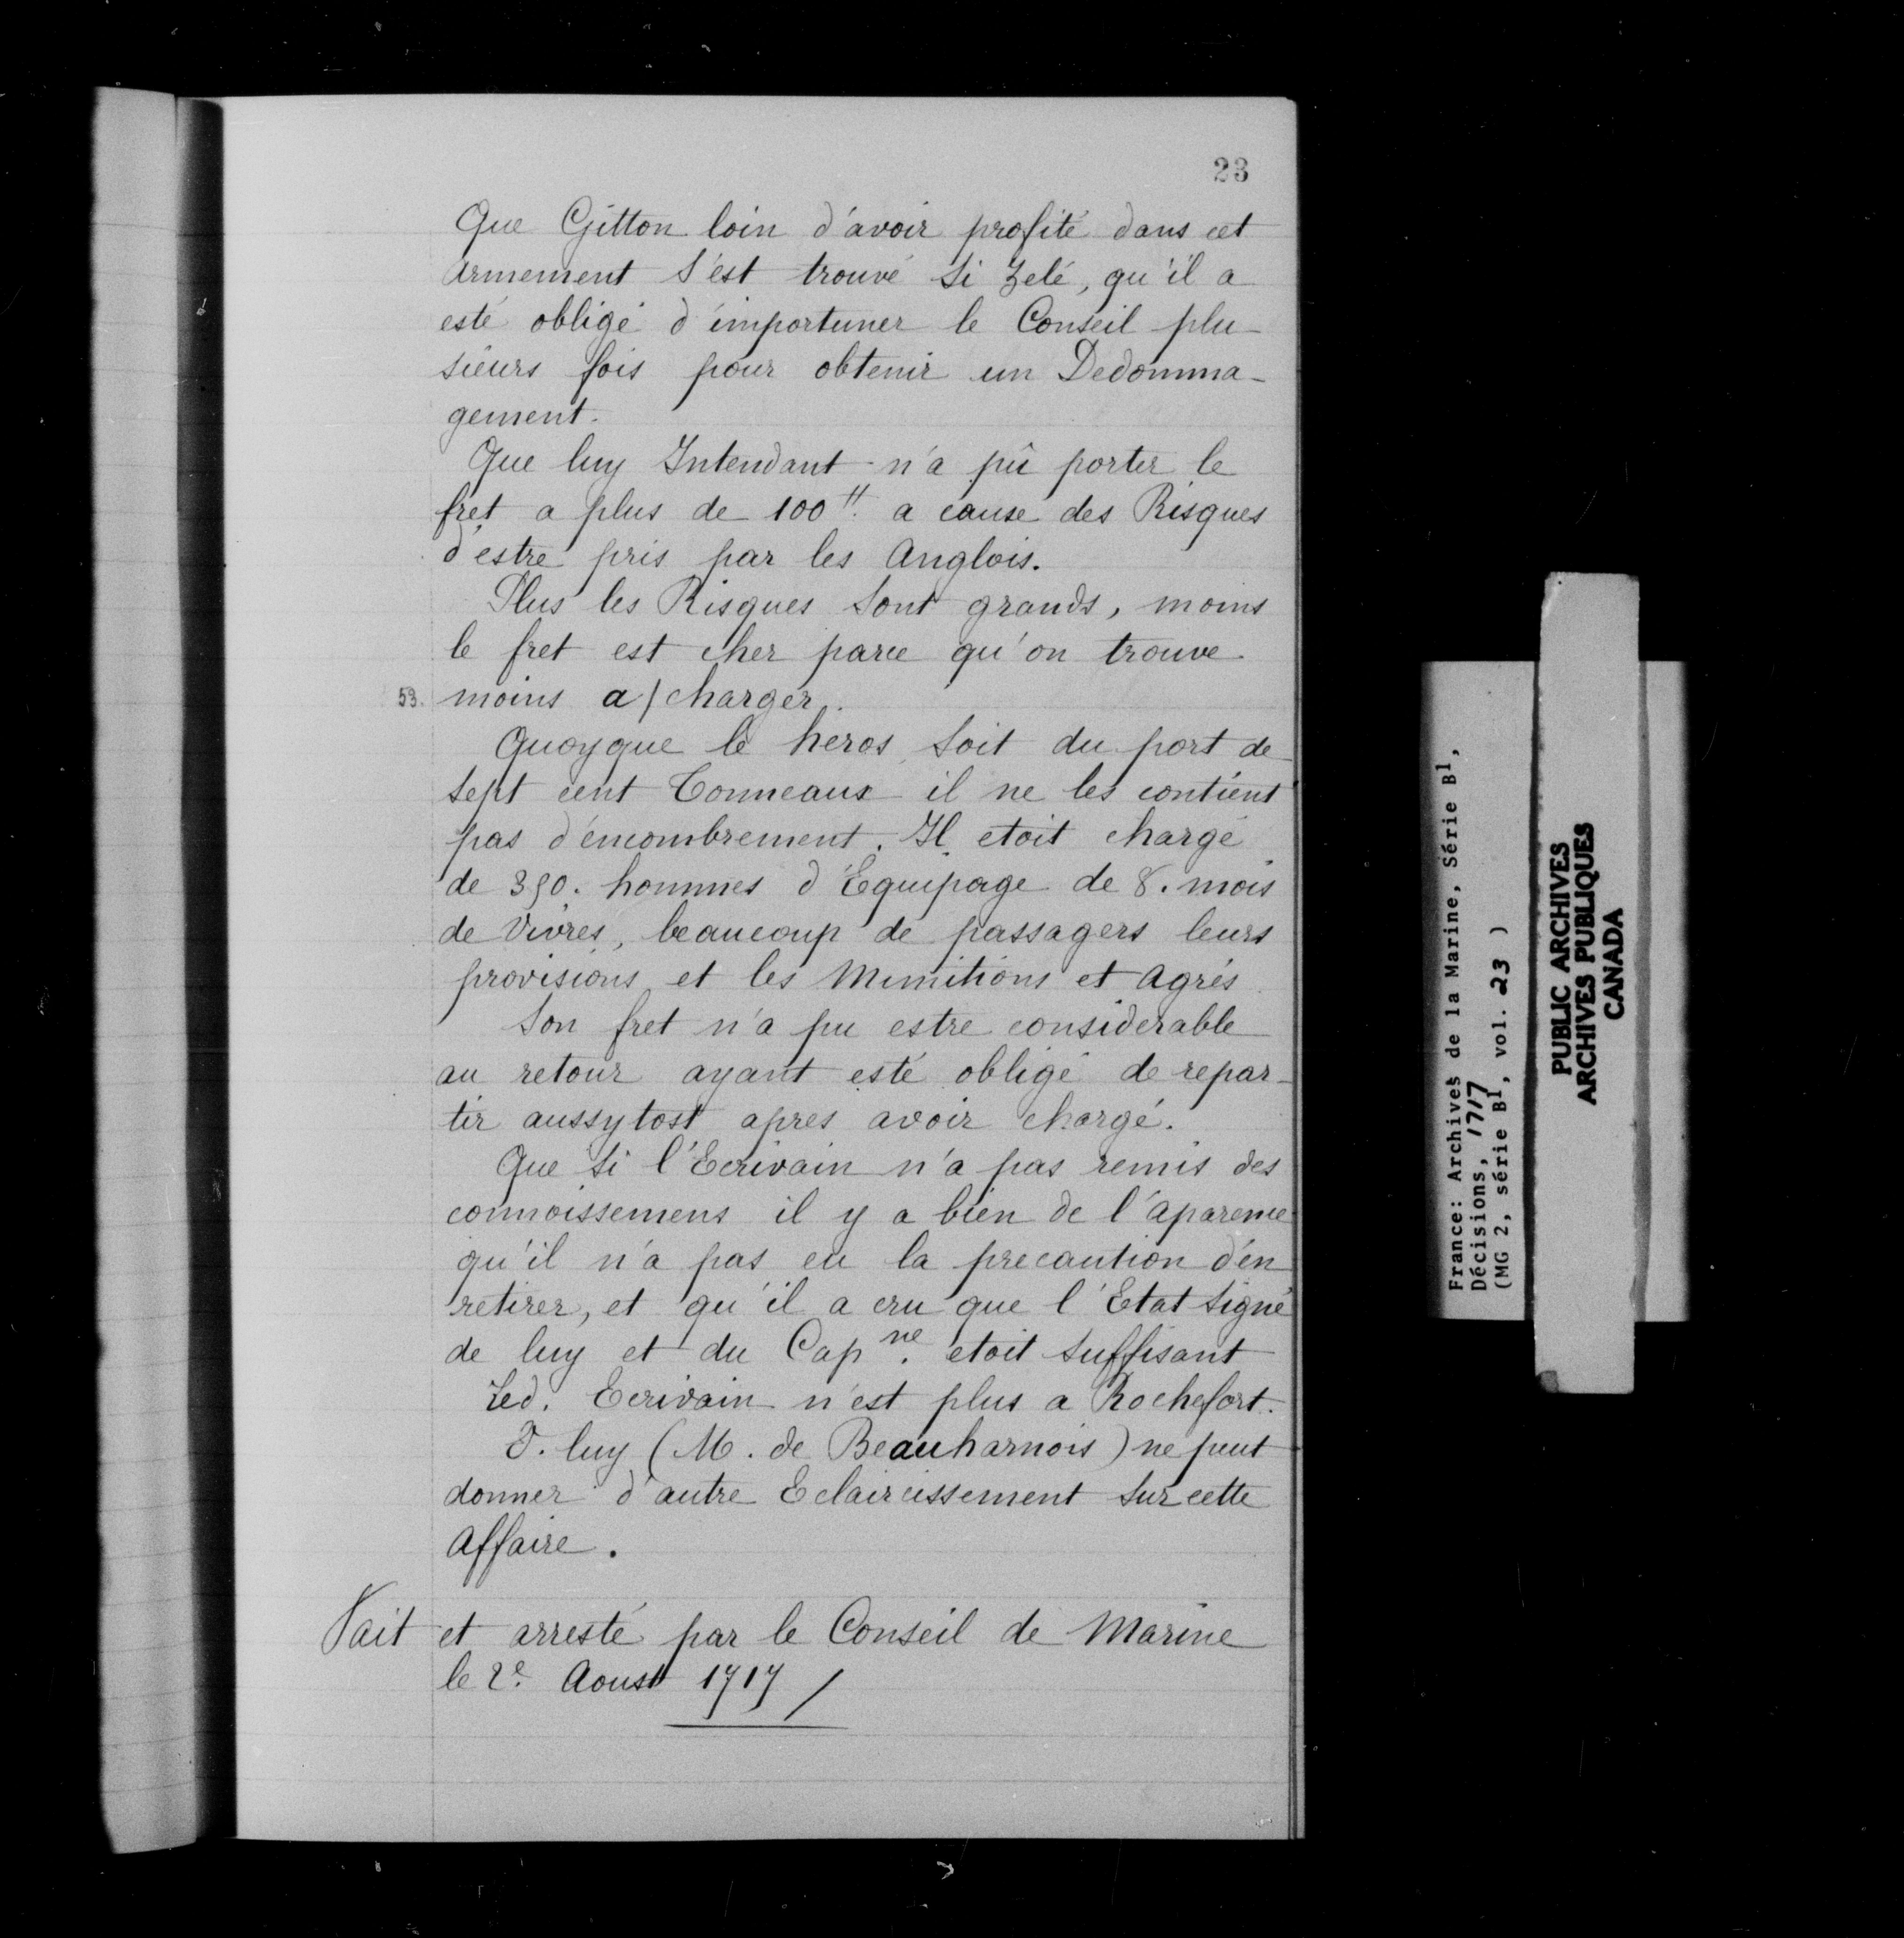 23
Que Gitton loin d'avoir profité dans cet
armement s'est trouvé si zelé, qu'il a
esté obligé d'importuner le Conseil plu-
sieurs fois pour obtenir un Dedomma-
gement.
Que luy Intendant n'a pû porter le
fret a plus de 100tt. a cause des Risques
d'estre pris par les Anglois.
Plus les Risques sont grands, moins
le fret est cher parce qu'on trouve
53. moins a/charger.
Quoyque le heros soit du port de
sept cent Tonneaux il ne les contient
pas d'encombrement. Il etoit chargé
de 350. hommes d'Equipage de 8. mois
de Vivres, beaucoup de passagers leurs
provisions et les Munitions et Agrés
Son fret n'a pu estre considerable
au retour ayant esté obligé de repar-
tir aussytost apres avoir chargé.
Que si l'Ecrivain n'a pas remis des
connoissemens il y a bien de l'aparence
qu'il n'a pas eu la precaution d'en
retirer, et qu'il a cru que l'Etat signé
de luy et du Capne. etoit suffisant
Led. Ecrivain n'est plus a Rochefort.
P. luy (M. de Beauharnois) ne peut
donner d'autre Eclaircissement sur cette
Affaire.
Fait et arresté par le Conseil de Marine
le 2e. Aoust 1717 /
France: Archives de la Marine, Série B1,
Décisions, 1717
(MG 2, série B1, vol. 23 )
PUBLIC ARCHIVES
ARCHIVES PUBLIQUES
CANADA